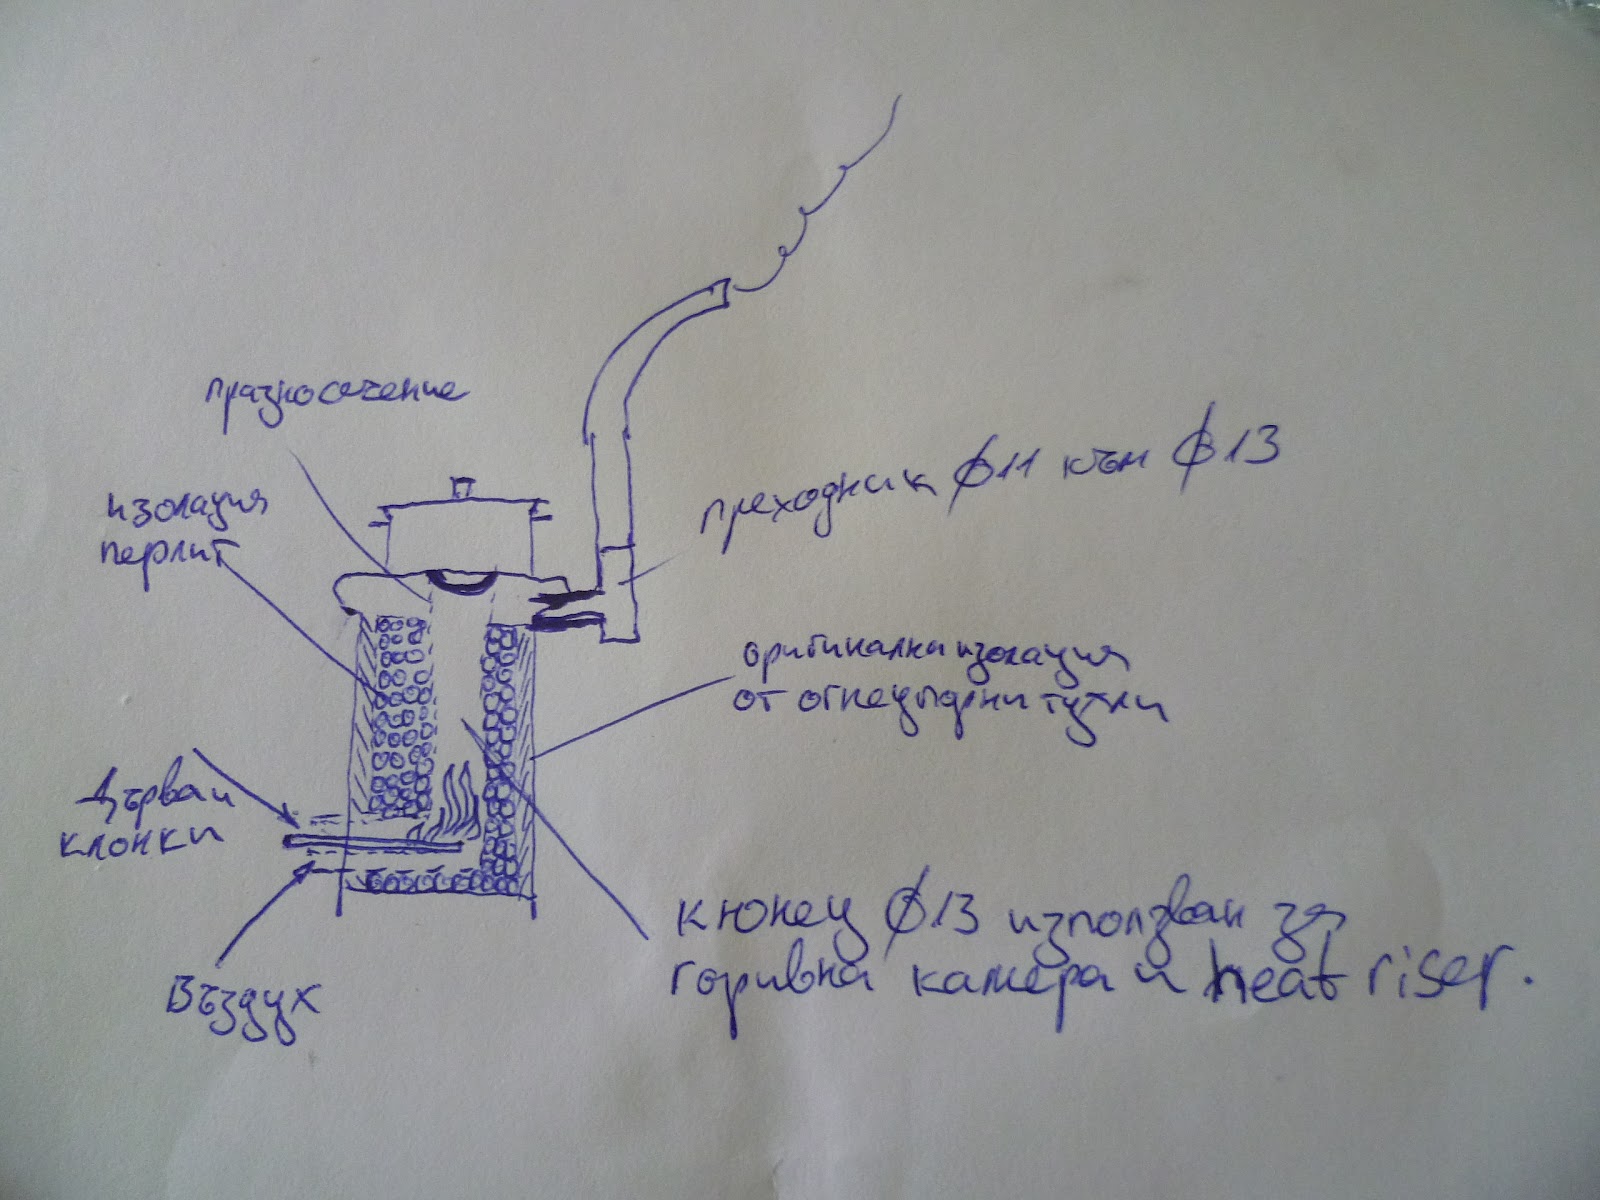 празно сечение
изолация
перлит
преходник ф11 към ф13
оригинална изолация
от огнеупорни тухли
Дърва и
клонки
Въздух
кюнец ф13 използван за
горивна камера и heat riser.